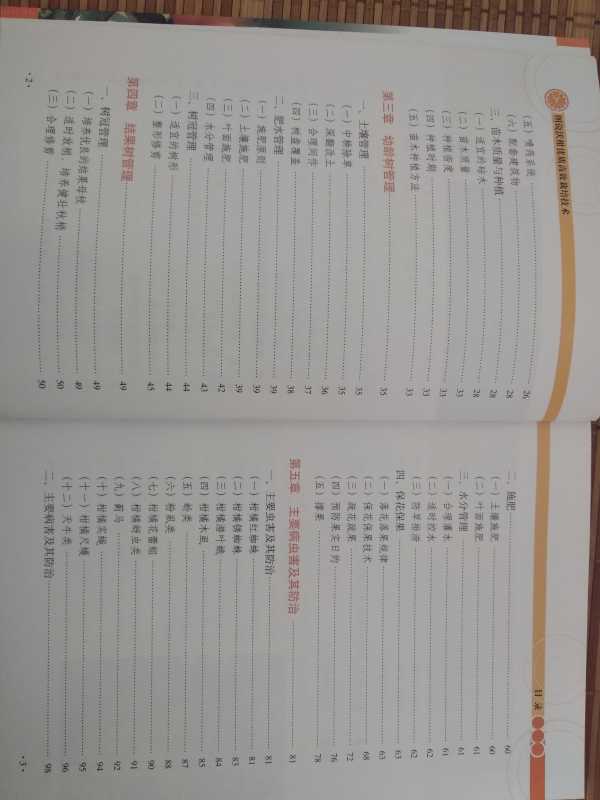 优质高效栽培技术
（五）喷药系统 26
（六）配套建筑物 28
三、苗木质量与种植 28
（一）适宜的砧木 28
（二）苗木质量 33
（三）种植密度 33
（四）种植时期 33
（五）苗木种植方法 33
第三章 幼龄树管理 35
一、土壤管理 35
（一）中耕除草 35
（二）深翻改土 36
（三）合理间作 37
（四）树盘覆盖 38
二、肥水管理 39
（一）施肥原则 39
（二）土壤施肥 39
（三）叶面施肥 42
（四）水分管理 43
三、树冠管理 44
（一）适宜的树形 44
（二）整形修剪 45
第四章 结果树管理 49
一、树冠管理 49
（一）培养优良的结果母枝 49
（二）适时放梢，培养健壮秋梢 50
（三）合理修剪 50
·2·
目 录
二、施肥 60
（一）土壤施肥 60
（二）叶面施肥 61
三、水分管理 61
（一）合理灌水 61
（二）适时控水 62
（三）防旱排涝 62
四、保花保果 63
（一）落花落果规律 63
（二）保花保果技术 68
（三）疏花疏果 72
（四）预防果实日灼 76
（五）撑果 78
第五章 主要病虫害及其防治 81
一、主要虫害及其防治 81
（一）柑橘红蜘蛛 81
（二）柑橘锈蜘蛛 83
（三）柑橘潜叶蛾 84
（四）柑橘木虱 85
（五）蚧类 87
（六）粉虱类 88
（七）柑橘花蕾蛆 90
（八）柑橘蚜虫类 91
（九）蓟马 92
（十）柑橘实蝇 94
（十一）柑橘尺蠖 95
（十二）天牛类 96
二、主要病害及其防治 98
·3·